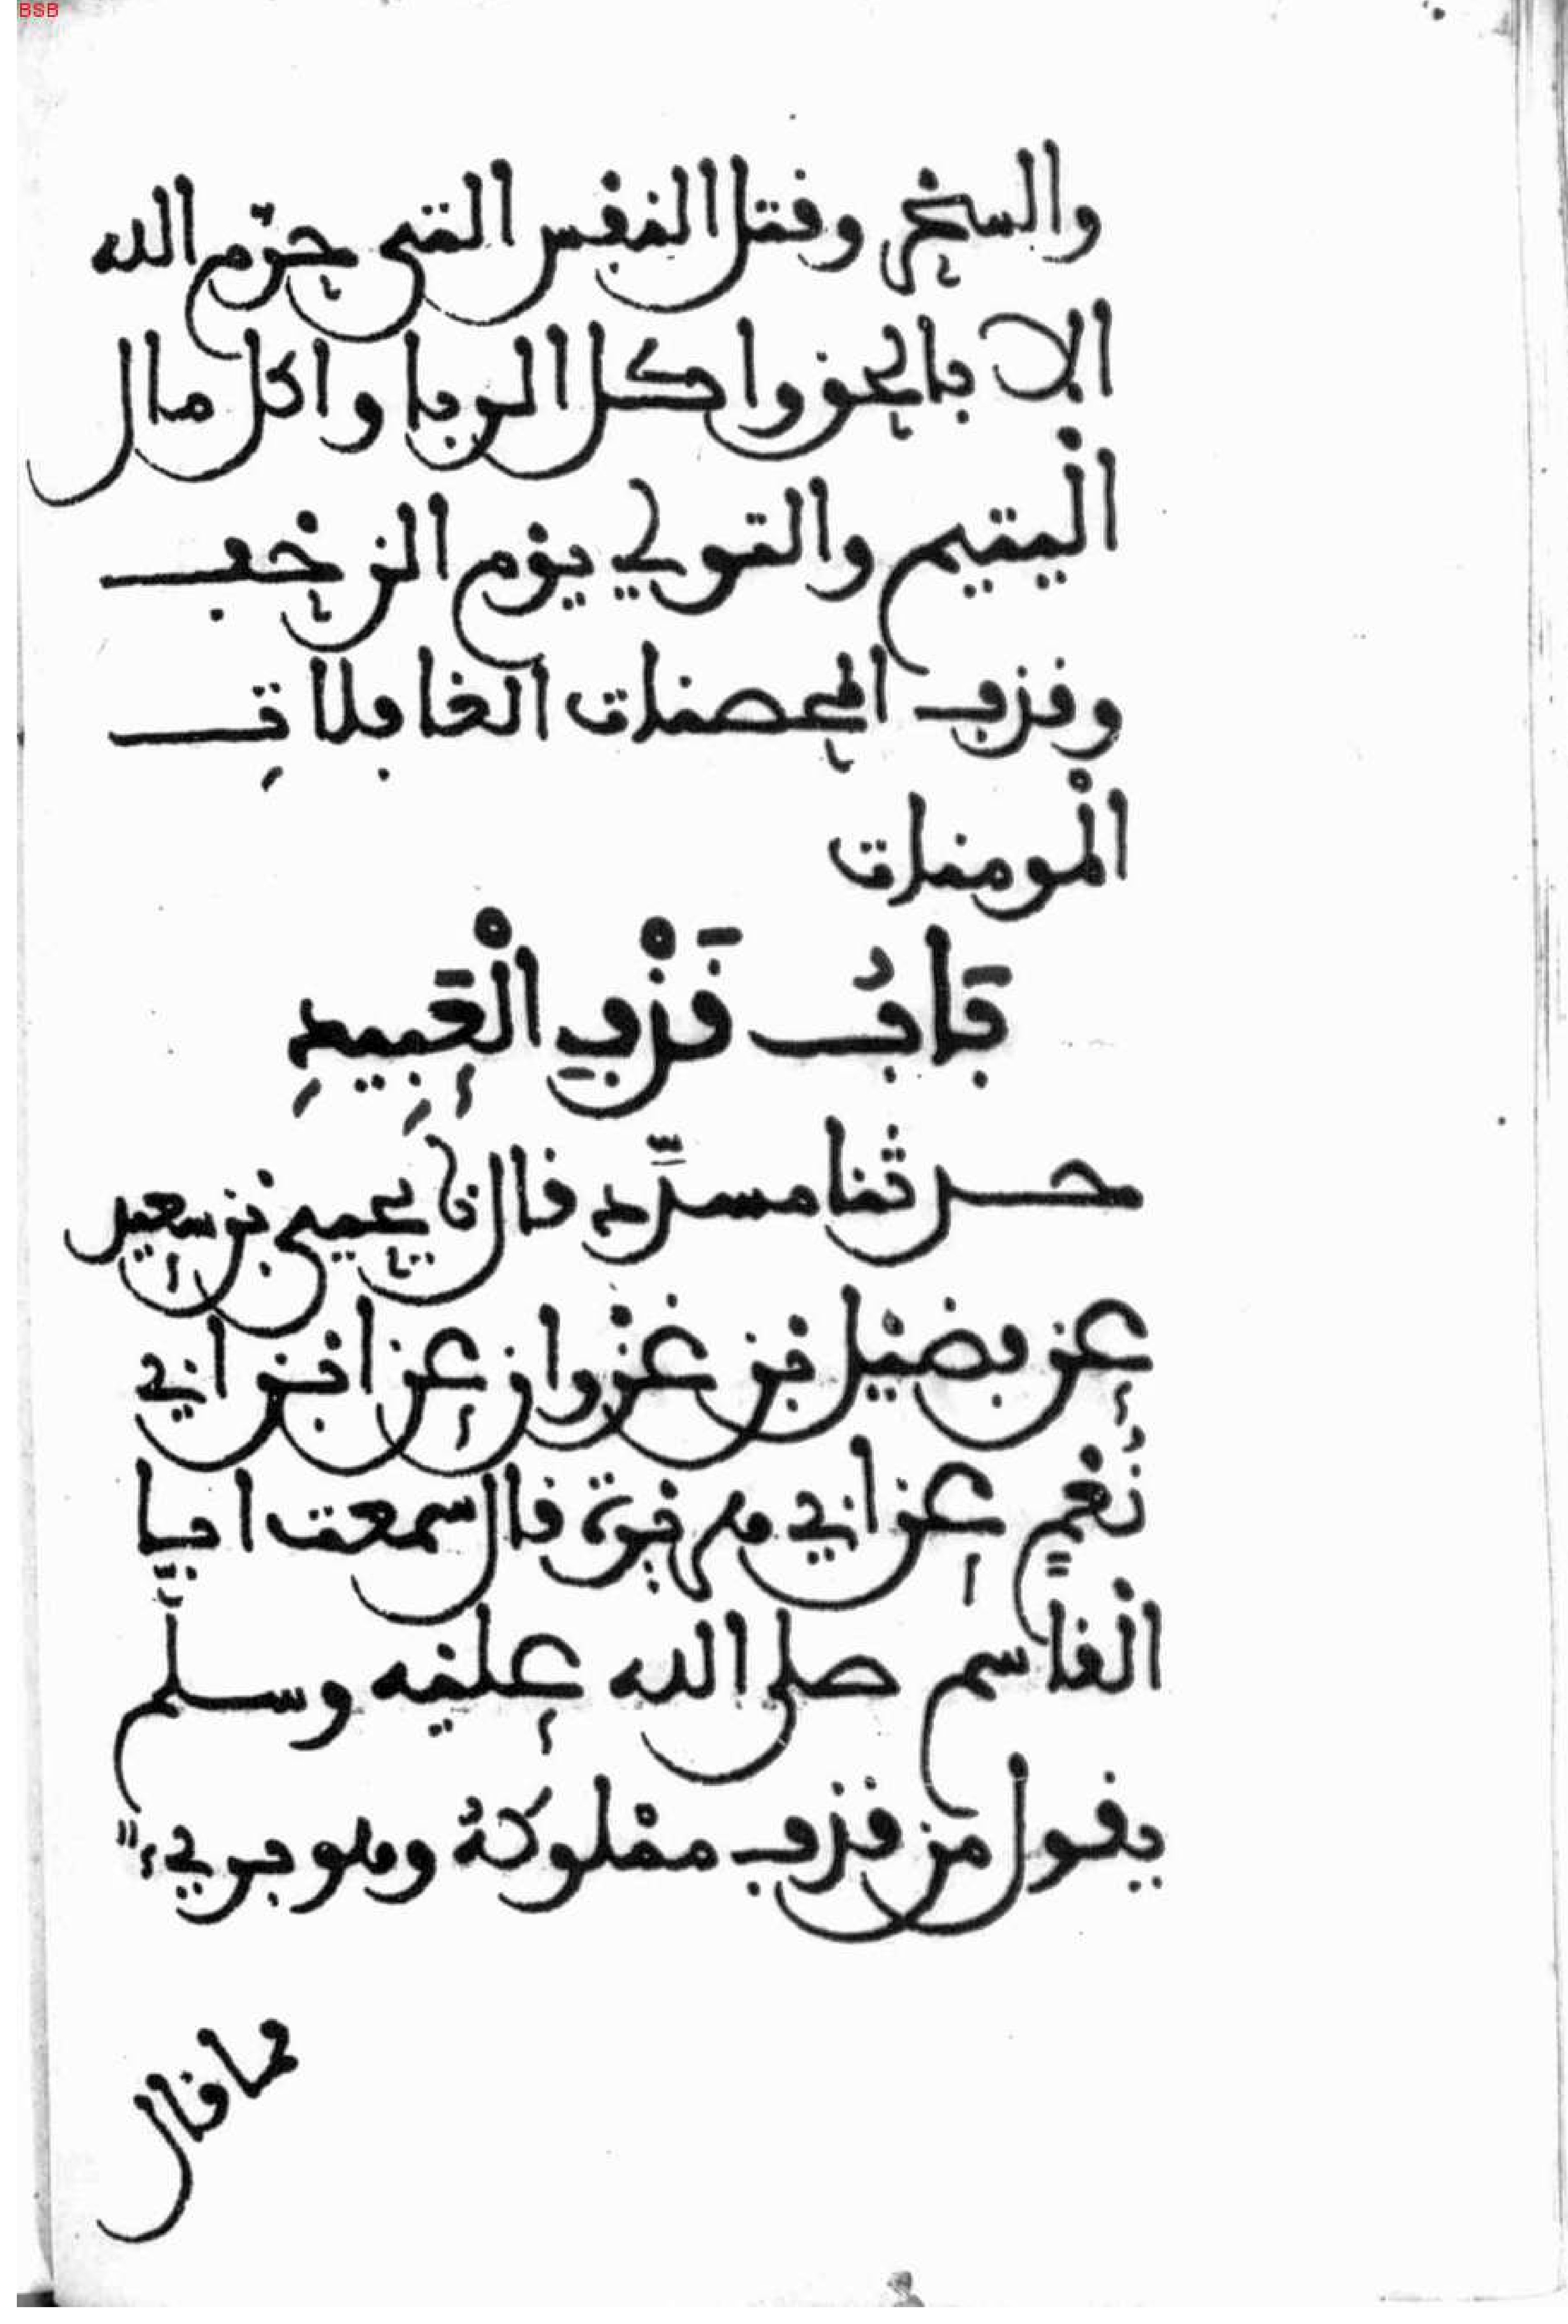 BSB
والسحر وقتل النفس التي حرّم الله
الا بالحق واكل الربا واكل مال
الْيتيم والتولي يوْم الزحْف
وقذف المحصنات الغافلاتِ
الْمومنات
بَابُ قَذْفِ الْعَبِيدِ
حدثنا مسدَّد قال نا يحيى بن سعيد
عن فضيْل بن غزْوان عن ابن ابي
نُعْمٍ عن ابي هريرة قال سمعت ابا
الْقاسم صلى الله عليْه وسلَّم
يقول مَن قذف ممْلوكَهُ وهو بريء
مما قال